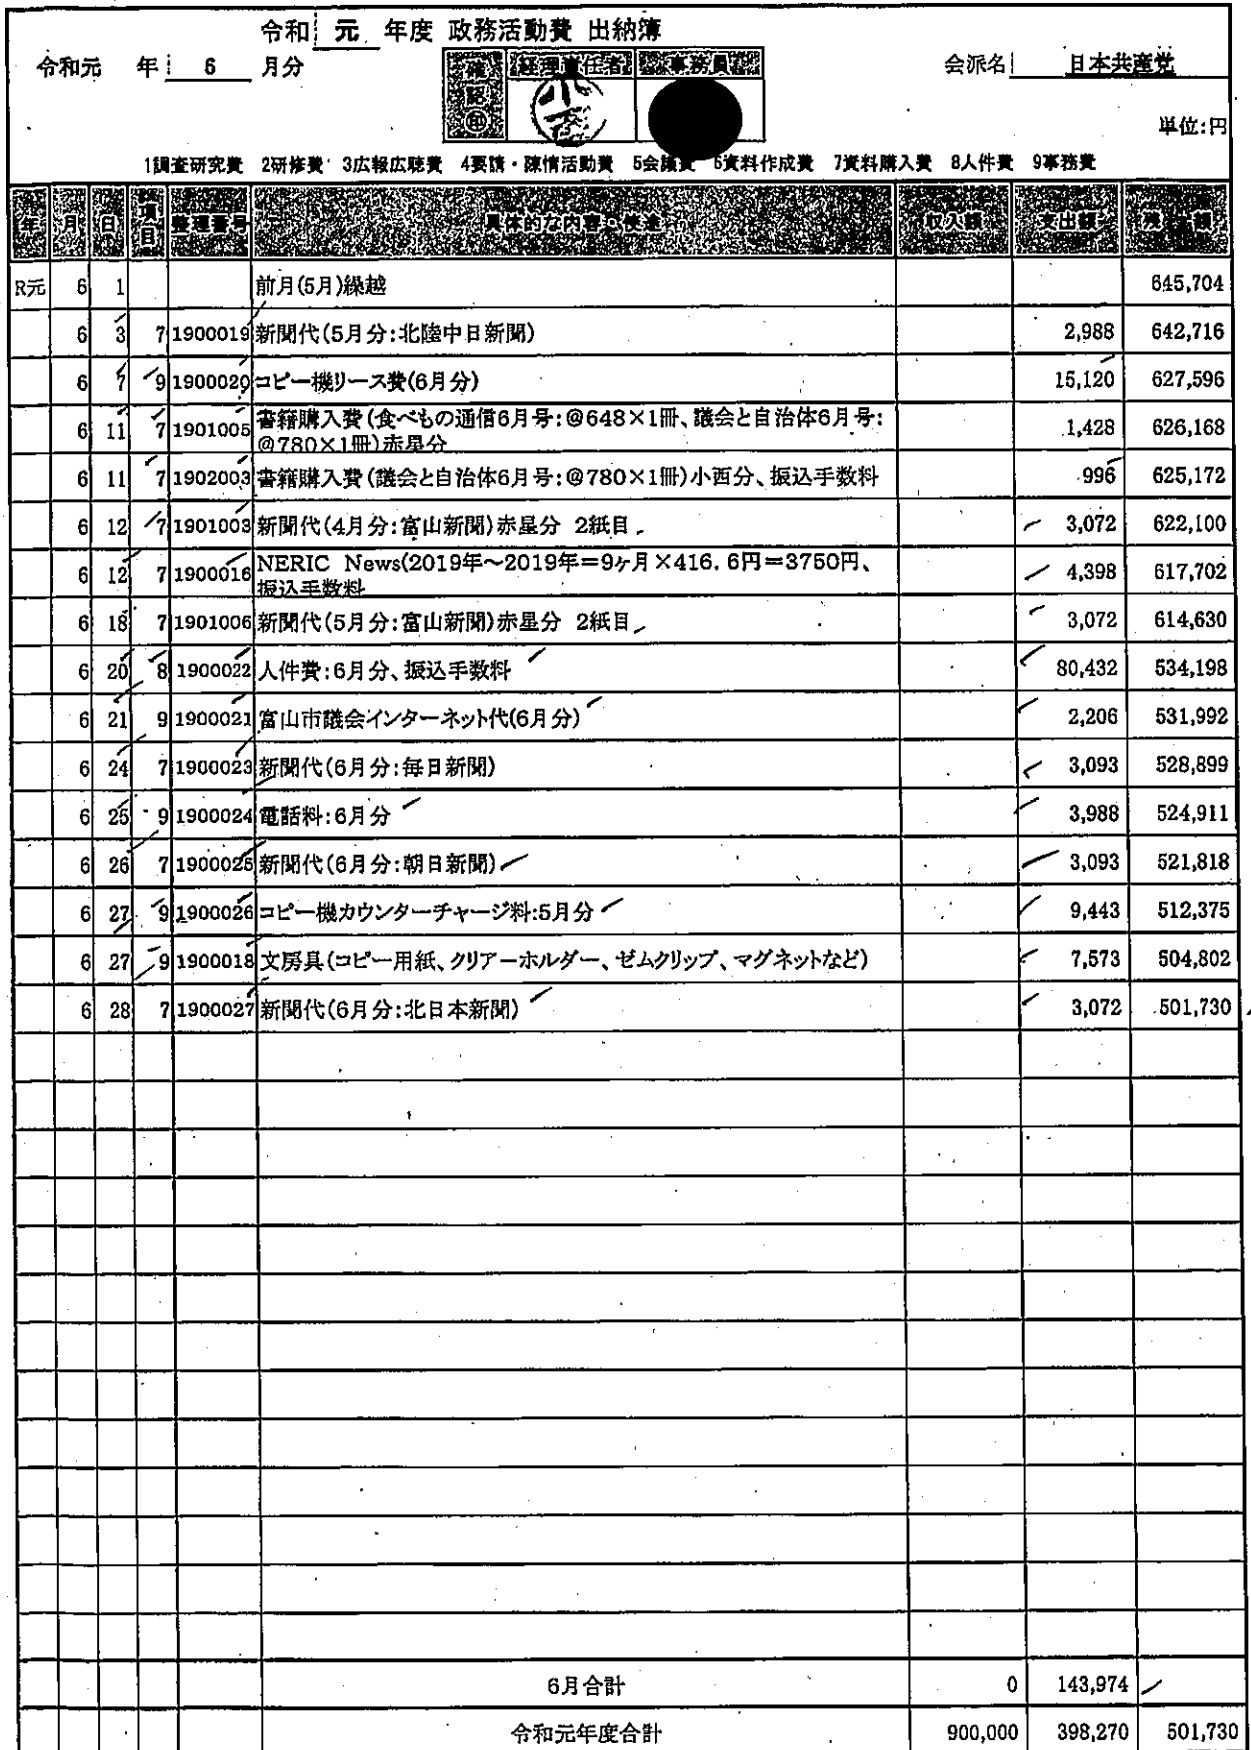 令和 元 年度 政務活動費 出納簿
令和元 年 6 月分 会派名 日本共産党
確認㊞ 経理責任者 事務員
単位:円
1調査研究費 2研修費 3広報広聴費 4要請・陳情活動費 5会議費 6資料作成費 7資料購入費 8人件費 9事務費
年 月 日 項目 整理番号 具体的な内容・使途 収入額 支出額 残額
R元 6 1 前月(5月)繰越 645,704
6 3 7 1900019 新聞代(5月分:北陸中日新聞) 2,988 642,716
6 7 9 1900020 コピー機リース費(6月分) 15,120 627,596
6 11 7 1901005 書籍購入費(食べもの通信6月号:@648×1冊、議会と自治体6月号:
@780×1冊)赤星分 1,428 626,168
6 11 7 1902003 書籍購入費(議会と自治体6月号:@780×1冊)小西分、振込手数料 996 625,172
6 12 7 1901003 新聞代(4月分:富山新聞)赤星分 2紙目 3,072 622,100
6 12 7 1900016 NERIC News(2019年~2019年=9ヶ月×416.6円=3750円、
振込手数料 4,398 617,702
6 18 7 1901006 新聞代(5月分:富山新聞)赤星分 2紙目 3,072 614,630
6 20 8 1900022 人件費:6月分、振込手数料 80,432 534,198
6 21 9 1900021 富山市議会インターネット代(6月分) 2,206 531,992
6 24 7 1900023 新聞代(6月分:毎日新聞) 3,093 528,899
6 25 9 1900024 電話料:6月分 3,988 524,911
6 26 7 1900025 新聞代(6月分:朝日新聞) 3,093 521,818
6 27 9 1900026 コピー機カウンターチャージ料:5月分 9,443 512,375
6 27 9 1900018 文房具(コピー用紙、クリアーホルダー、ゼムクリップ、マグネットなど) 7,573 504,802
6 28 7 1900027 新聞代(6月分:北日本新聞) 3,072 501,730
6月合計 0 143,974
令和元年度合計 900,000 398,270 501,730